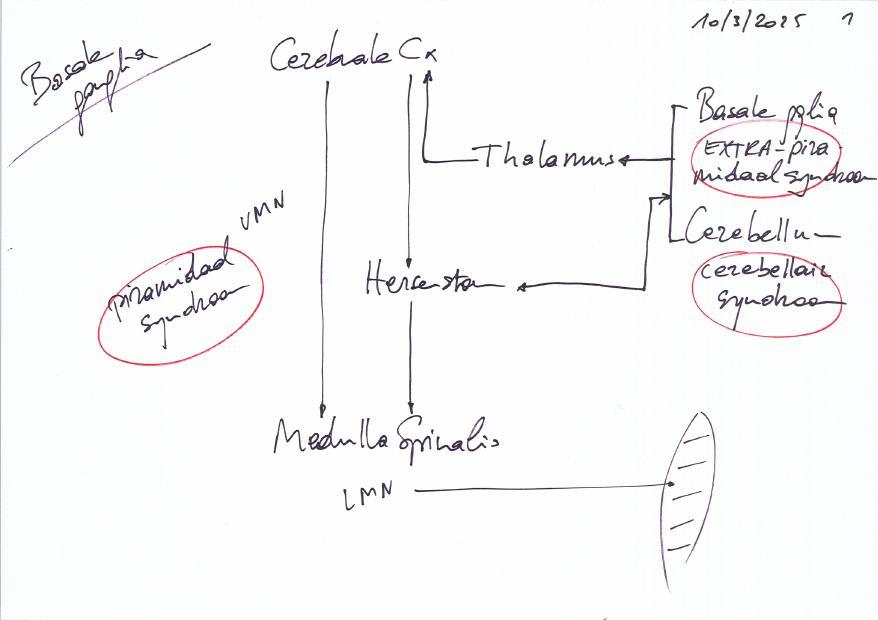 10/3/2025 1
Basale
ganglia
Cerebrale Cx
Basale gglia
EXTRA-pira
midaal syndroom
Thalamus
UMN
Cerebellum
piramidaal
syndroom
Hersenstam
cerebellair
syndroom
Medulla Spinalis
LMN